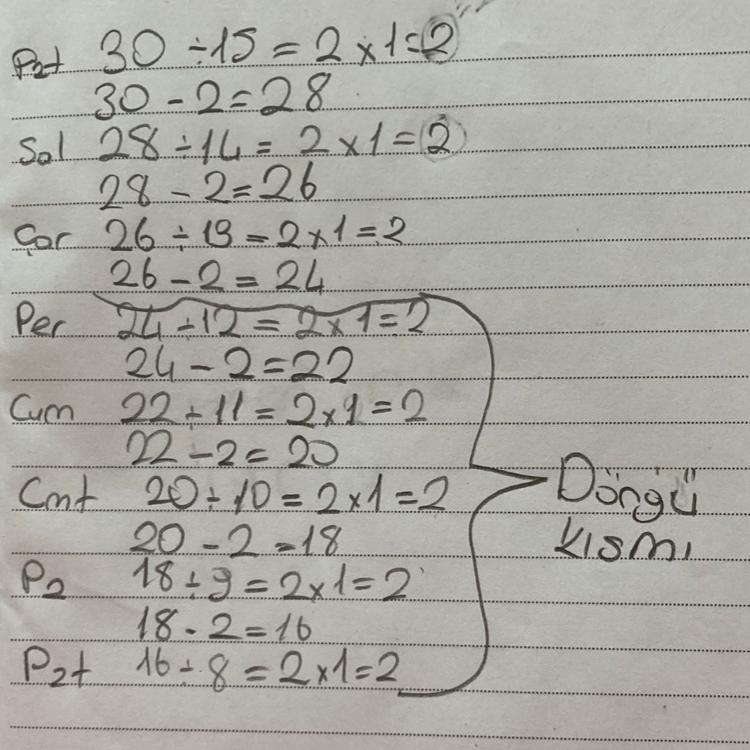 Pzt 30 ÷ 15 = 2 x 1 = 2
30 - 2 = 28
Sal 28 ÷ 14 = 2 x 1 = 2
28 - 2 = 26
Çar 26 ÷ 13 = 2 x 1 = 2
26 - 2 = 24
Per 24 ÷ 12 = 2 x 1 = 2
24 - 2 = 22
Cum 22 ÷ 11 = 2 x 1 = 2
22 - 2 = 20
Cmt 20 ÷ 10 = 2 x 1 = 2
20 - 2 = 18
Pz 18 ÷ 9 = 2 x 1 = 2
18 - 2 = 16
Pzt 16 ÷ 8 = 2 x 1 = 2
Döngü
kısmı